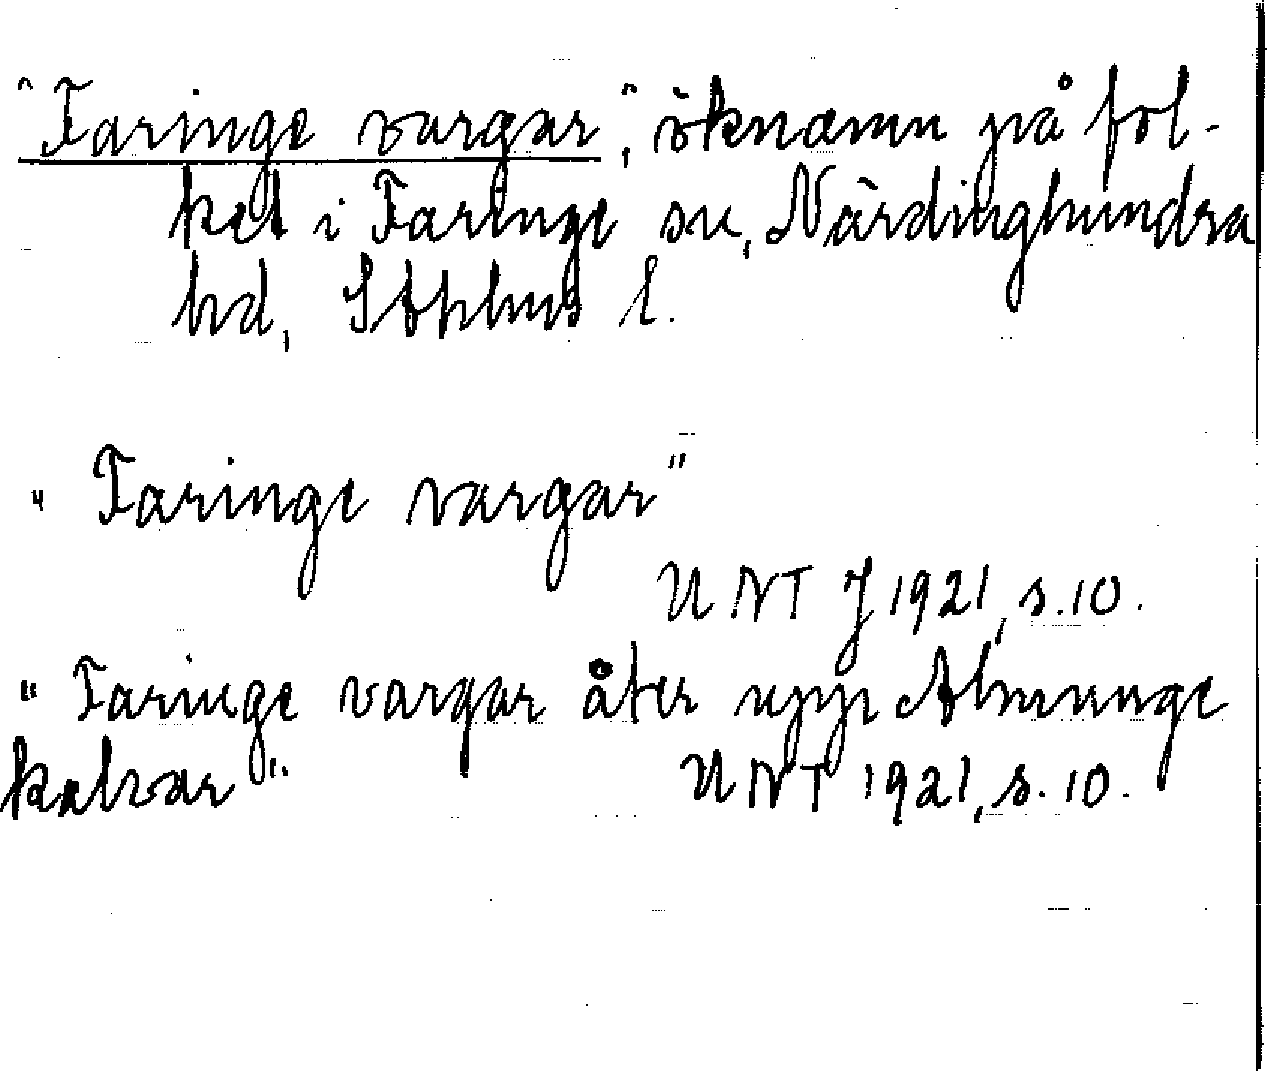 "Faringe vargar", öknamn på fol-
ket i Faringe sn, Närdinghundra
hd, Sthlms l.
"Faringe vargar"
UNT J 1921, s. 10.
"Faringe vargar åter upp Almunge
kalvar" UNT 1921, s. 10.